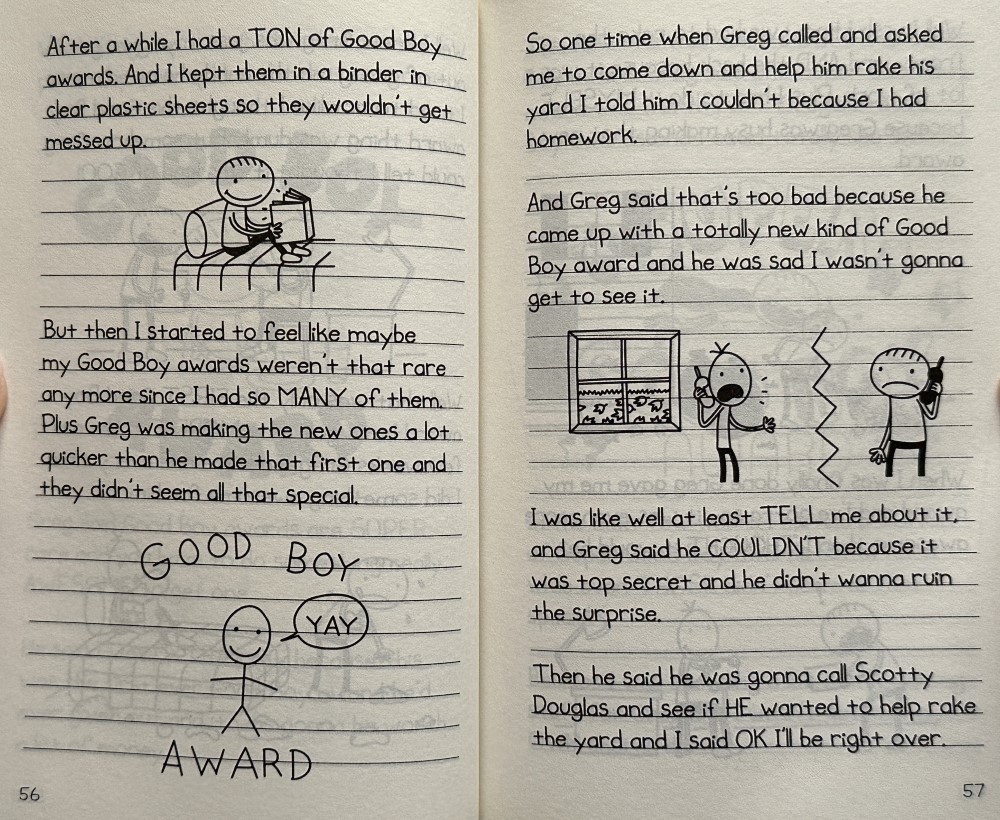 After a while I had a TON of Good Boy
awards. And I kept them in a binder in
clear plastic sheets so they wouldn't get
messed up.
But then I started to feel like maybe
my Good Boy awards weren't that rare
any more since I had so MANY of them.
Plus Greg was making the new ones a lot
quicker than he made that first one and
they didn't seem all that special.
GOOD BOY
YAY
AWARD
56
So one time when Greg called and asked
me to come down and help him rake his
yard I told him I couldn't because I had
homework.
And Greg said that's too bad because he
came up with a totally new kind of Good
Boy award and he was sad I wasn't gonna
get to see it.
I was like well at least TELL me about it,
and Greg said he COULDN'T because it
was top secret and he didn't wanna ruin
the surprise.
Then he said he was gonna call Scotty
Douglas and see if HE wanted to help rake
the yard and I said OK I'll be right over.
57